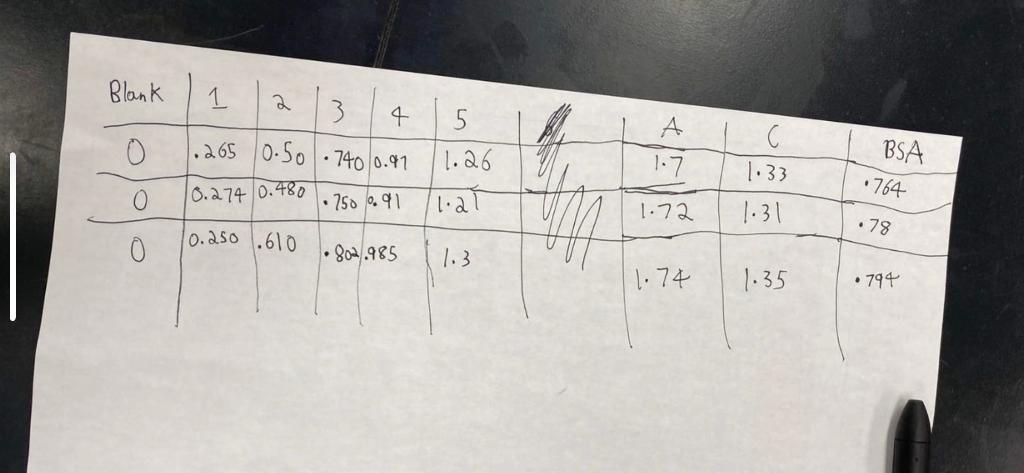 Blank 1 2 3 4 5 A C BSA
0 .265 0.50 .740 0.91 1.26 1.7 1.33 .764
0 0.274 0.480 .750 0.91 1.21 1.72 1.31 .78
0 0.250 .610 .802 .985 1.3 1.74 1.35 .794